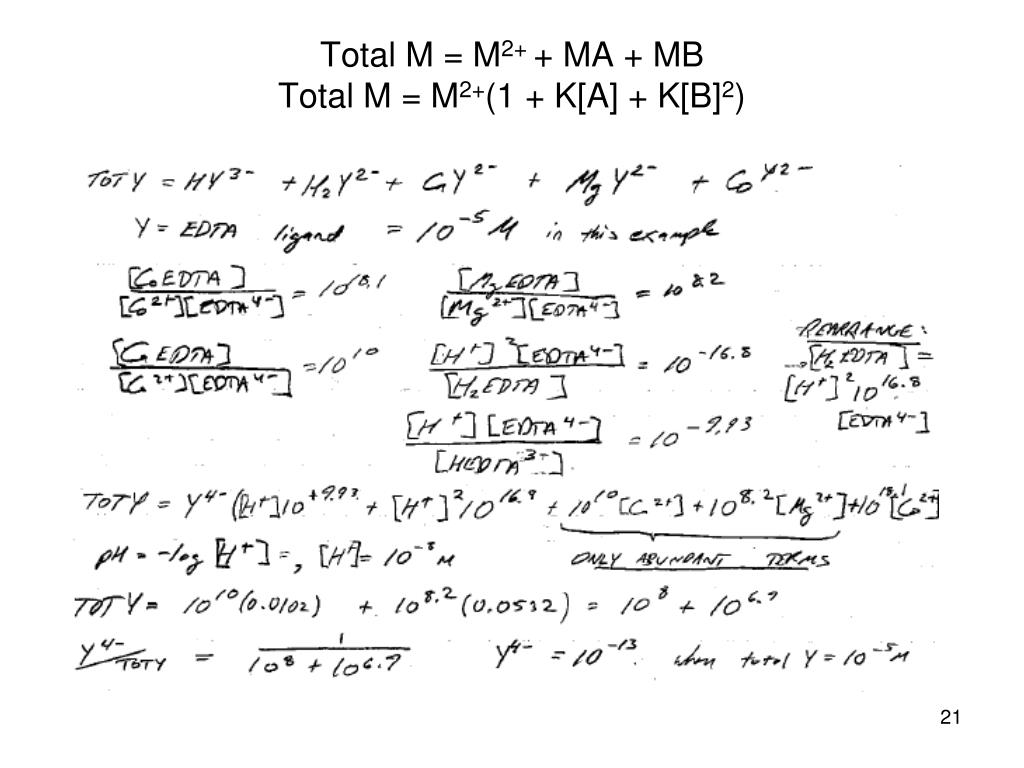 Total M = M²⁺ + MA + MB
Total M = M²⁺(1 + K[A] + K[B]²)
TOT Y = HY³⁻ + H₂Y²⁻ + CaY²⁻ + MgY²⁻ + CoY²⁻
Y = EDTA ligand = 10⁻⁵ M in this example
[CoEDTA] / [Co²⁺][EDTA⁴⁻] = 10¹⁸·¹ [MgEDTA] / [Mg²⁺][EDTA⁴⁻] = 10⁸·²
[CaEDTA] / [Ca²⁺][EDTA⁴⁻] = 10¹⁰ [H⁺]²[EDTA⁴⁻] / [H₂EDTA] = 10⁻¹⁶·⁸
REARRANGE:
[H₂EDTA] =
[H⁺]² 10¹⁶·⁸
[EDTA⁴⁻]
[H⁺][EDTA⁴⁻] / [HEDTA³⁻] = 10⁻⁹·⁹³
TOT Y = Y⁴⁻([H⁺]10⁺⁹·⁹³ + [H⁺]²10¹⁶·⁸ + 10¹⁰[Ca²⁺] + 10⁸·²[Mg²⁺] + 10¹⁸·¹[Co²⁺]
pH = -log[H⁺] =, [H⁺] = 10⁻⁸ M ONLY ABUNDANT TERMS
TOT Y = 10¹⁰(0.0102) + 10⁸·²(0.0532) = 10⁸ + 10⁶·⁷
Y⁴⁻/TOTY = 1 / 10⁸ + 10⁶·⁷ Y⁴⁻ = 10⁻¹³ when total Y = 10⁻⁵ M
21